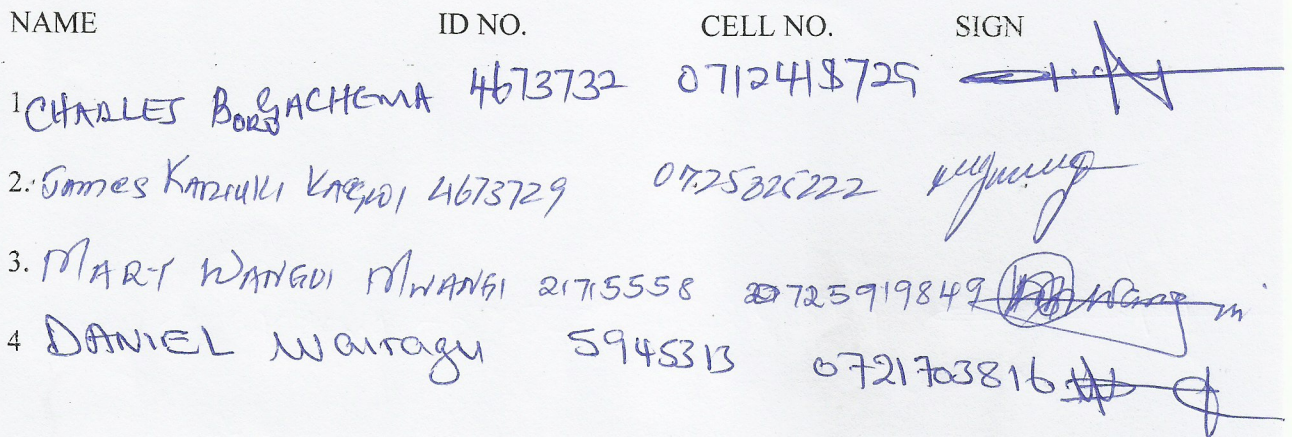 NAME ID NO. CELL NO. SIGN
1 CHARLES BORO GACHEMA 4673732 0712418729
2. James KARIUKI KAGWI 4673729 0725326222
3. MARY WANGUI MWANGI 21715558 0725919849 Wangui
4 DANIEL Wairagu 5945313 0721703816